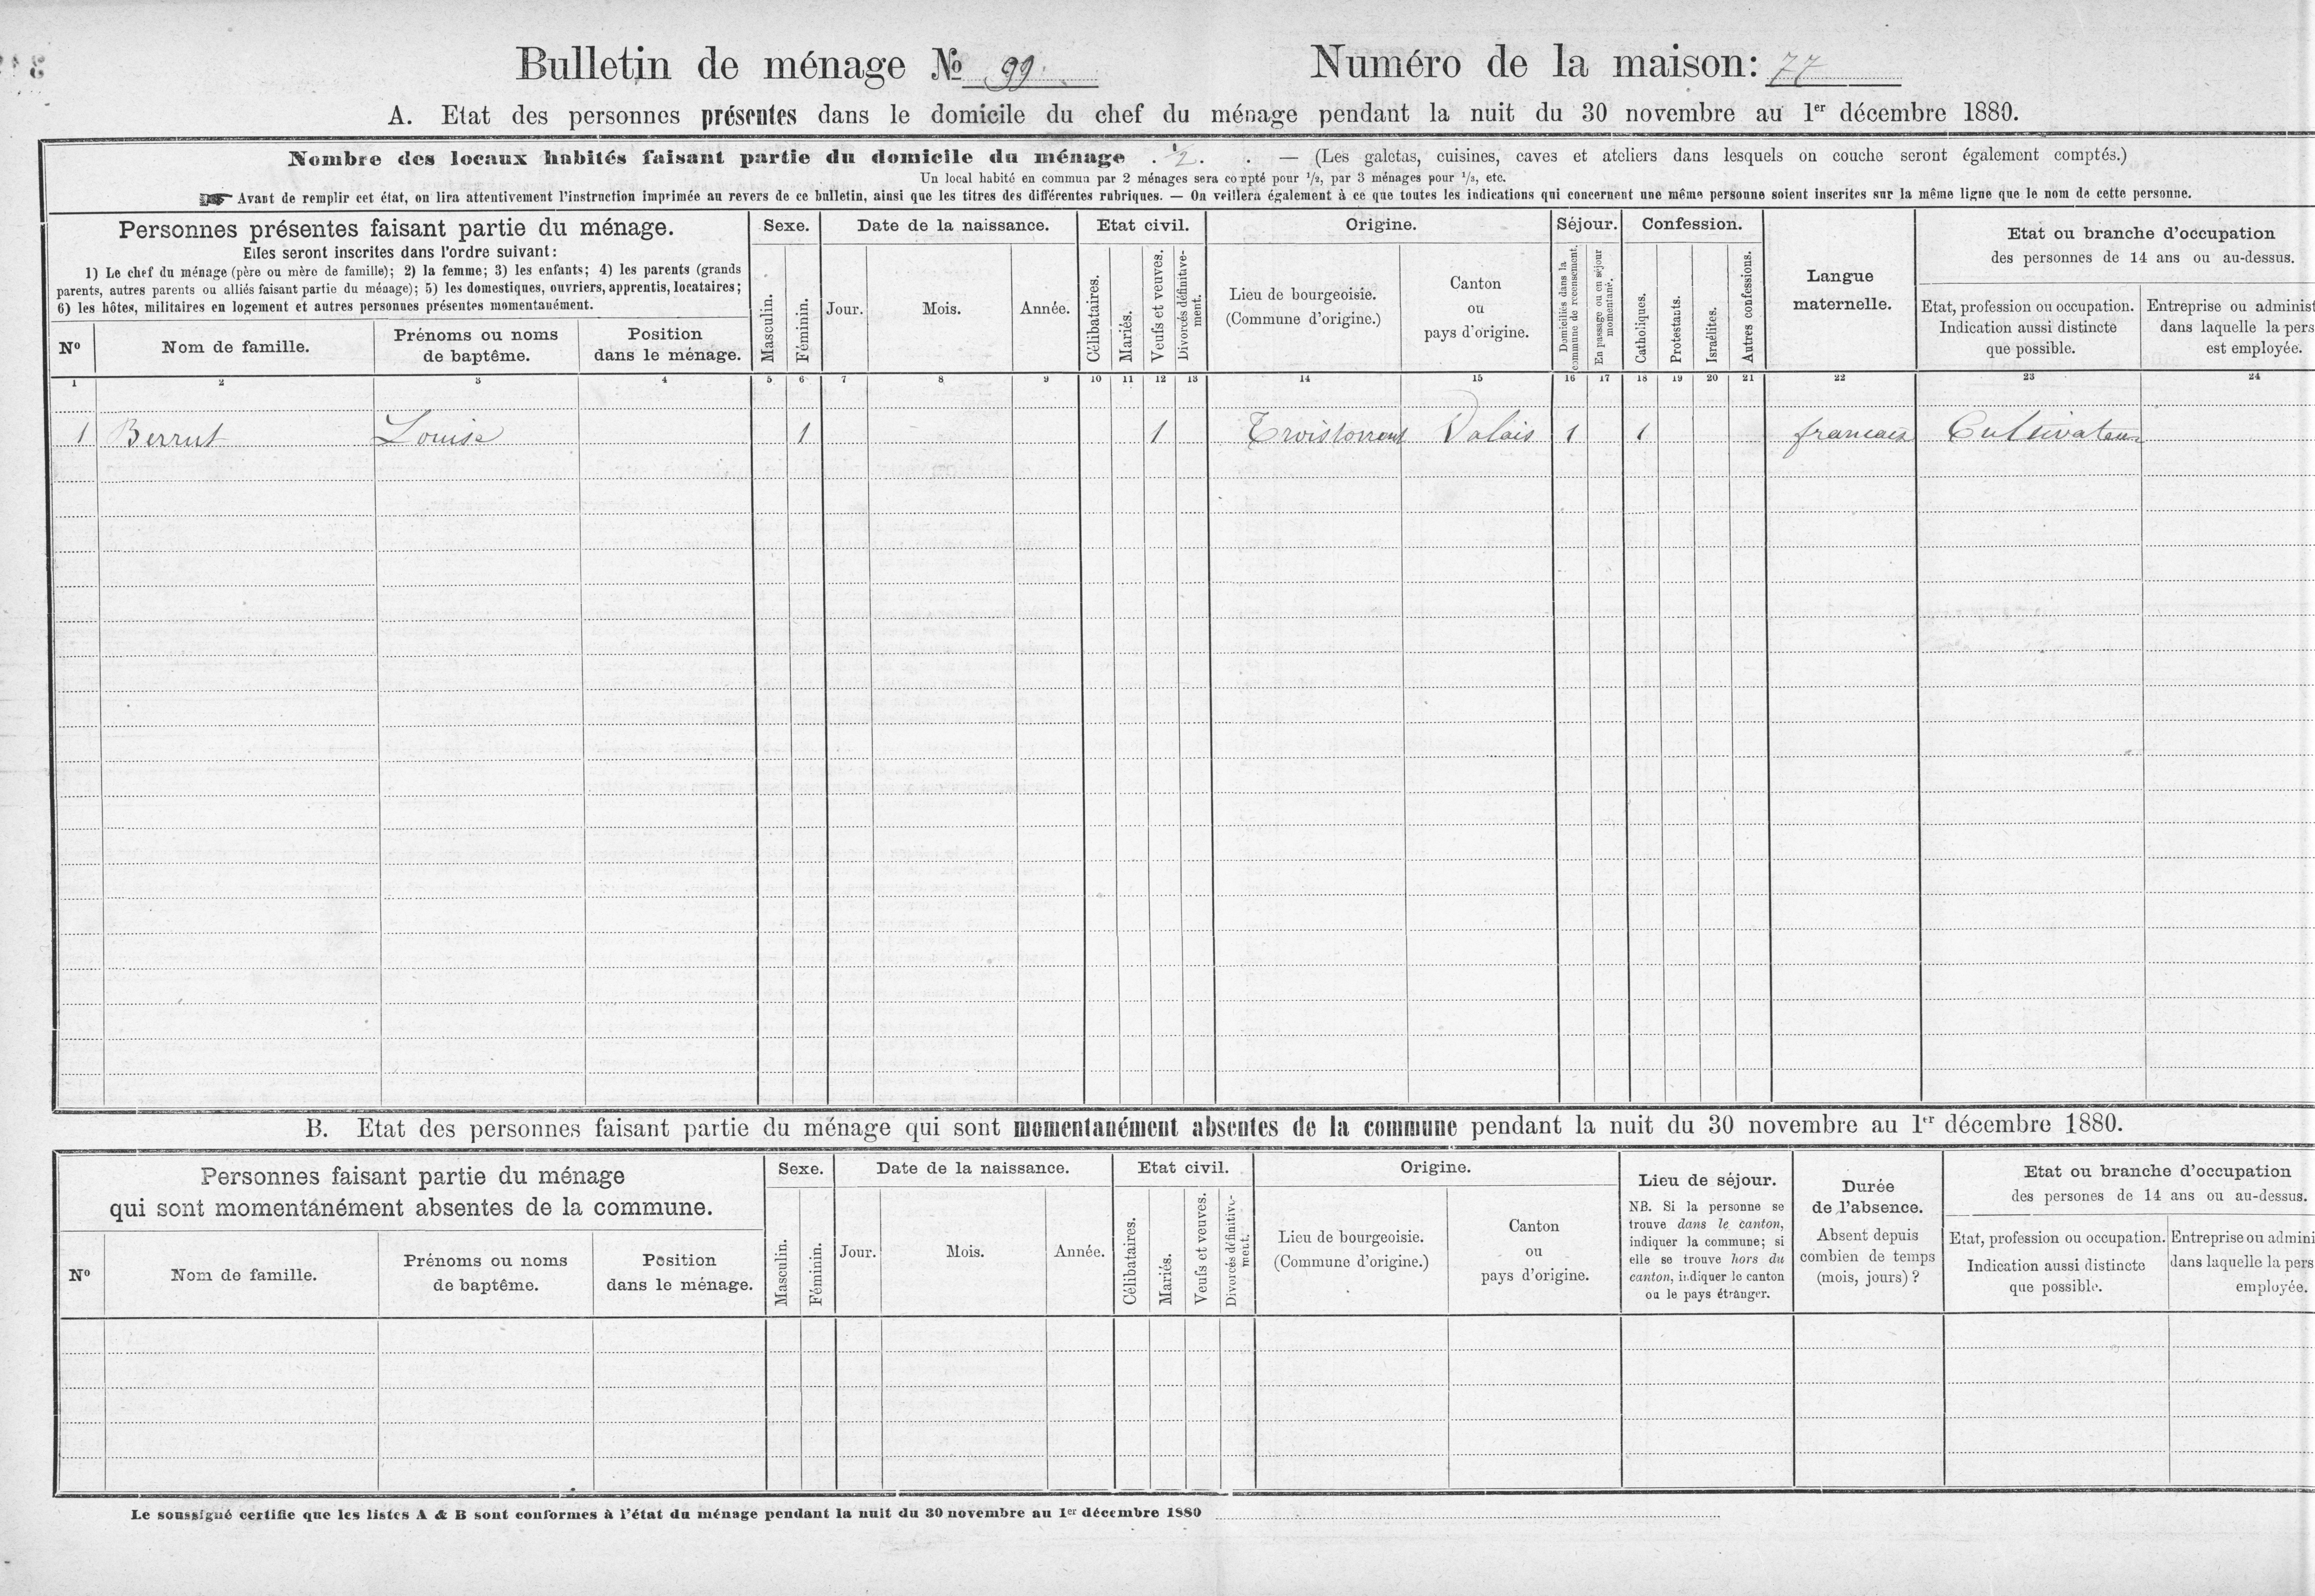 Bulletin de ménage No 99 Numéro de la maison: 77
A. Etat des personnes présentes dans le domicile du chef du ménage pendant la nuit du 30 novembre au 1er décembre 1880.
Nombre des locaux habités faisant partie du domicile du ménage . 1/2 . . — (Les galetas, cuisines, caves et ateliers dans lesquels on couche seront également comptés.)
Un local habité en commun par 2 ménages sera compté pour 1/2, par 3 ménages pour 1/3, etc.
Avant de remplir cet état, on lira attentivement l'instruction imprimée au revers de ce bulletin, ainsi que les titres des différentes rubriques. — On veillera également à ce que toutes les indications qui concernent une même personne soient inscrites sur la même ligne que le nom de cette personne.
Personnes présentes faisant partie du ménage.
Elles seront inscrites dans l'ordre suivant:
1) Le chef du ménage (père ou mère de famille); 2) la femme; 3) les enfants; 4) les parents (grands
parents, autres parents ou alliés faisant partie du ménage); 5) les domestiques, ouvriers, apprentis, locataires;
6) les hôtes, militaires en logement et autres personnes présentes momentanément.
No
Nom de famille.
Prénoms ou noms
de baptême.
Position
dans le ménage.
Sexe.
Masculin.
Féminin.
Date de la naissance.
Jour.
Mois.
Année.
Etat civil.
Célibataires.
Mariés.
Veufs et veuves.
Divorcés définitive-
ment.
Origine.
Lieu de bourgeoisie.
(Commune d'origine.)
Canton
ou
pays d'origine.
Séjour.
Domiciliés dans la
commune de recensement.
En passage ou en séjour
momentané.
Confession.
Catholiques.
Protestants.
Israélites.
Autres confessions.
Langue
maternelle.
Etat ou branche d'occupation
des personnes de 14 ans ou au-dessus.
Etat, profession ou occupation.
Indication aussi distincte
que possible.
Entreprise ou administ
dans laquelle la pers
est employée.
1 2 3 4 5 6 7 8 9 10 11 12 13 14 15 16 17 18 19 20 21 22 23 24
1 Berrut Louise 1 1 Troistorrent Valais 1 1 francais Cultivateur
B. Etat des personnes faisant partie du ménage qui sont momentanément absentes de la commune pendant la nuit du 30 novembre au 1er décembre 1880.
Personnes faisant partie du ménage
qui sont momentanément absentes de la commune.
No
Nom de famille.
Prénoms ou noms
de baptême.
Position
dans le ménage.
Sexe.
Masculin.
Féminin.
Date de la naissance.
Jour.
Mois.
Année.
Etat civil.
Célibataires.
Mariés.
Veufs et veuves.
Divorcés définitive-
ment.
Origine.
Lieu de bourgeoisie.
(Commune d'origine.)
Canton
ou
pays d'origine.
Lieu de séjour.
NB. Si la personne se
trouve dans le canton,
indiquer la commune; si
elle se trouve hors du
canton, indiquer le canton
ou le pays étranger.
Durée
de l'absence.
Absent depuis
combien de temps
(mois, jours) ?
Etat ou branche d'occupation
des persones de 14 ans ou au-dessus.
Etat, profession ou occupation.
Indication aussi distincte
que possible.
Entreprise ou admini
dans laquelle la pers
employée.
Le soussigné certifie que les listes A & B sont conformes à l'état du ménage pendant la nuit du 30 novembre au 1er décembre 1880